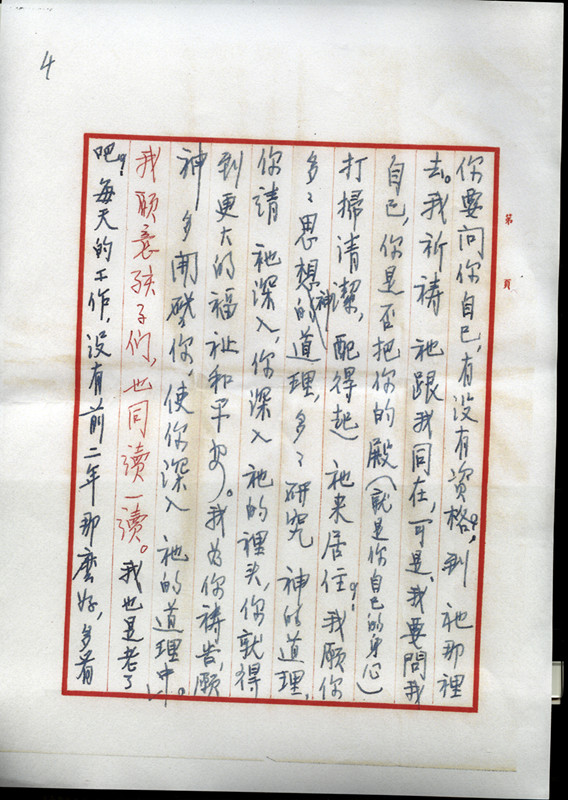 4
第 頁
你要问你自己,有没有資格?到 祂那裡
去。我祈祷 祂跟我同在,可是,我要問我
自己,你是否把你的殿(就是你自己的身心)
打掃清潔,配得起 祂来居住?我願你
多々思想神的道理,多々研究 神的道理,
你請 祂深入,你深入 祂的裡头,你就得
到更大的福祉和平安)。我为你祷告,願
神 多開啓你,使你深入 祂的道理中。
我願意孩子们,也同讀一讀。我也是老了
吧?每天的工作,没有前二年那麽好,多着